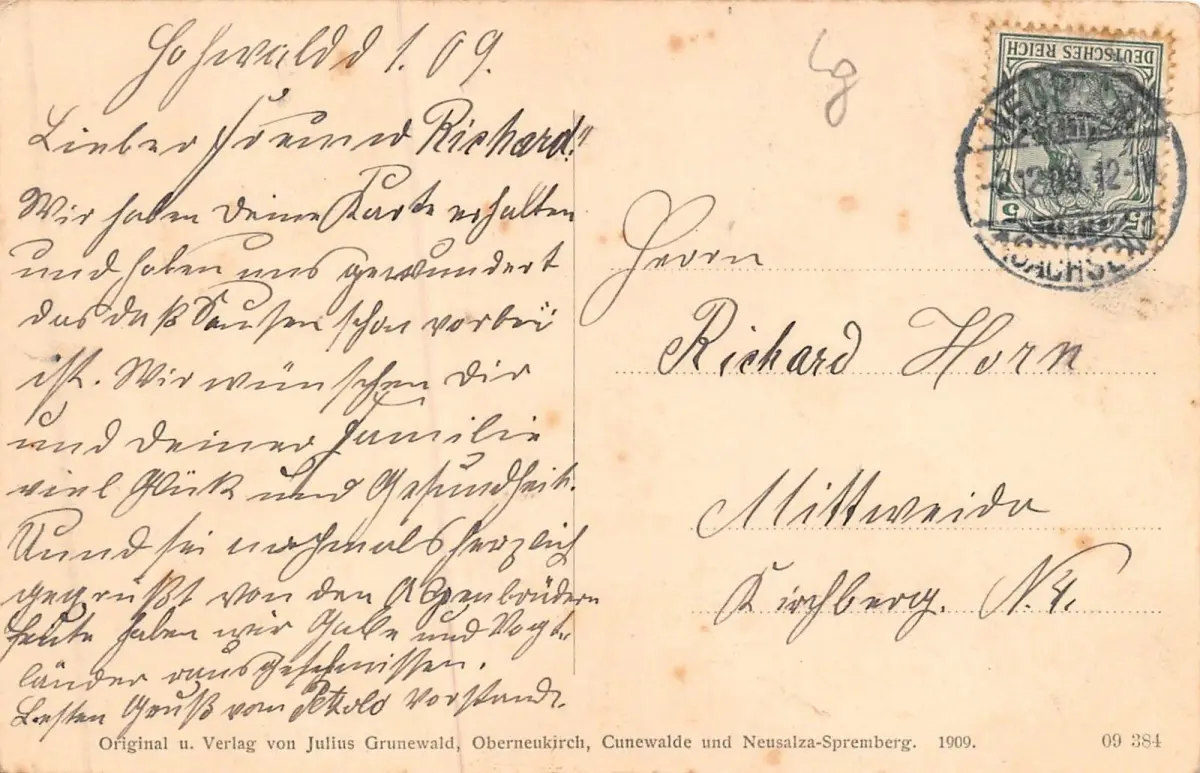 Hohwald d 1. 09.
Lieber Freund Richard!!
Wir haben Deine Karte erhalten
und haben uns gewundert
das daß Sausen schon vorbei
ist. Wir wünschen Dir
und Deiner Familie
viel Glück und Gesundheit.
und sei nochmals herzlich
gegrüßt von den
Heute haben wir und Vogt-
länder rausgeschmissen.
Besten Gruß vom Vorstand.
DEUTSCHES REICH
5 5
12.09. 12-
(SACHSEN)
Herrn
Richard Horn
Mittweida
Kirchberg. N. 4.
Original u. Verlag von Julius Grunewald, Oberneukirch, Cunewalde und Neusalza-Spremberg. 1909.
09 384